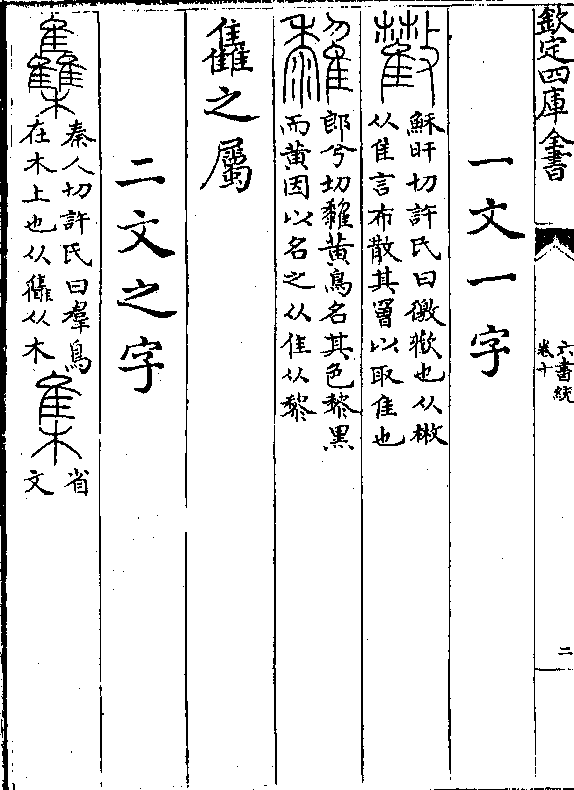 欽定四庫全書
六書統
卷十
二
一文一字
穌旰切許氏曰繳㪚也从㪔
从隹言布散其罾以取隹也
郎兮切雞黄鳥名其色黎黑
而黄因以名之从隹从黎
雥之屬
二文之字
秦人切許氏曰羣鳥
在木上也从雥从木
省
文